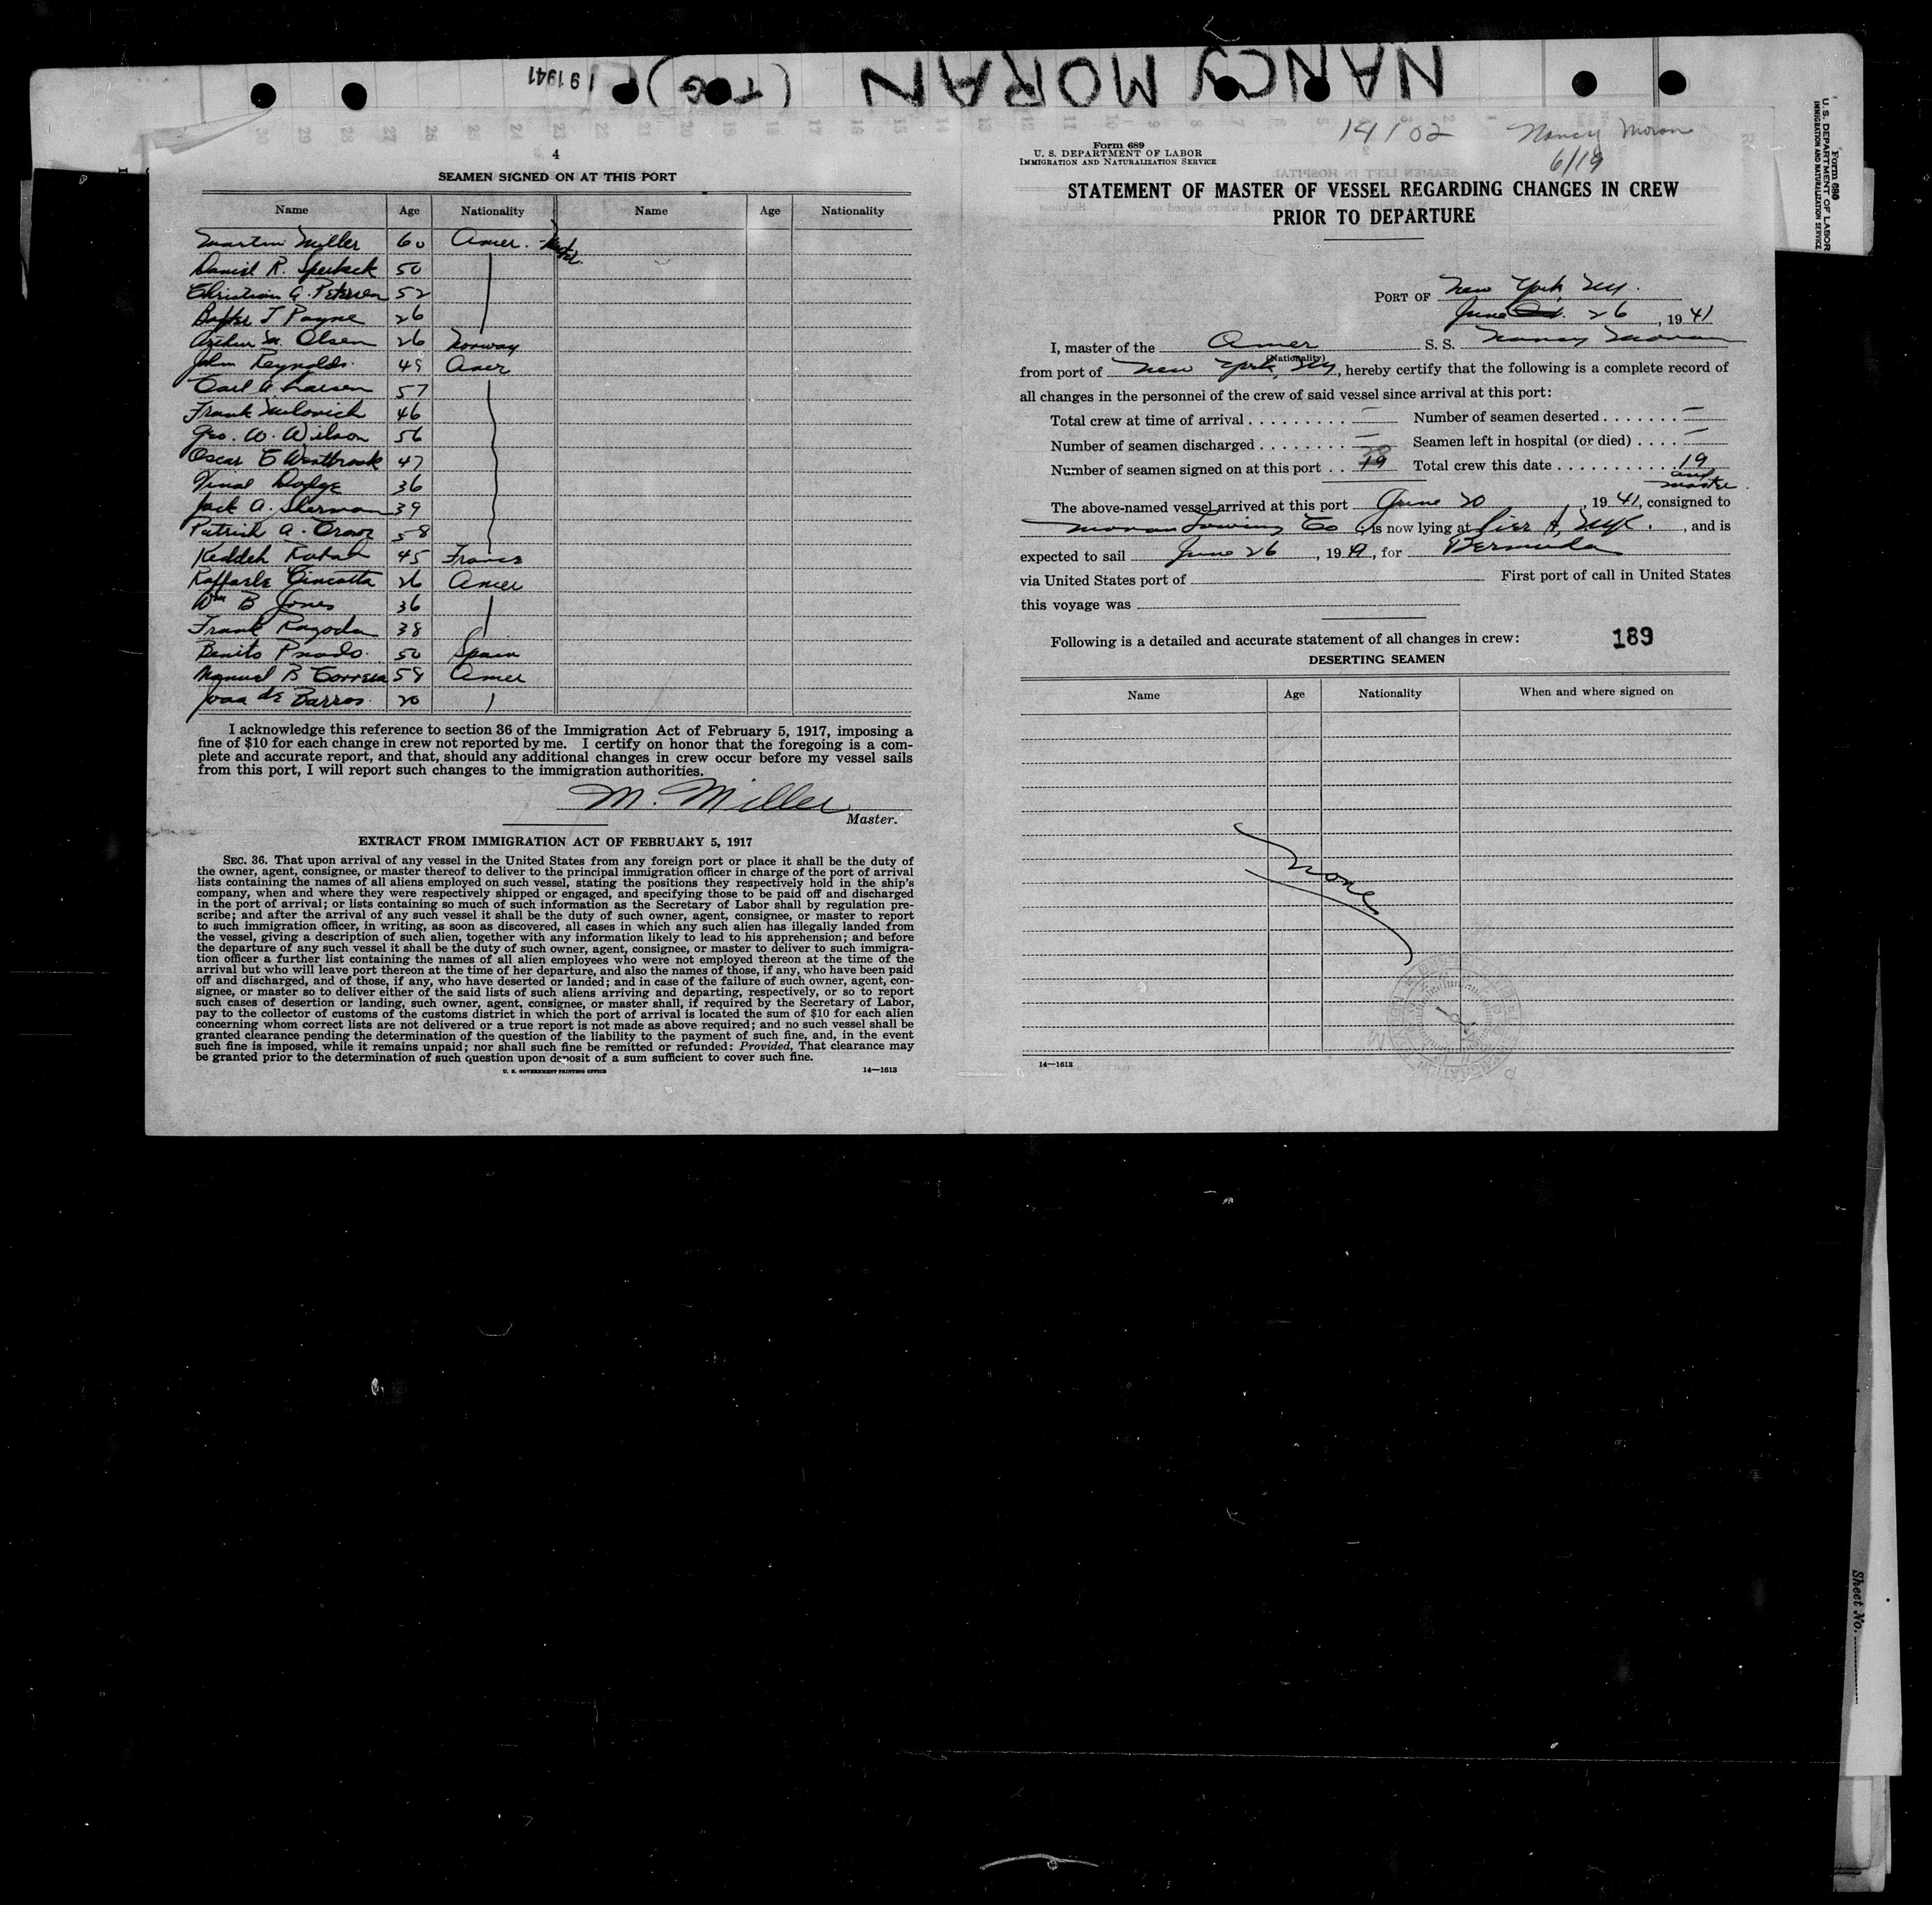 NANCY MORAN (TUG)
191941
4
SEAMEN SIGNED ON AT THIS PORT
Name Age Nationality Name Age Nationality
Martin Miller 60 Amer. Master.
Daniel R. 50
Christian G. Petersen 52
J Payne 26
Arthur M. Olsen 26 Norway
John Reynolds. 49 Amer
Carl A. Larsen 57
Frank Milovich 46
Geo. W. Wilson 56
Oscar E Westbrook 47
Vinal Dodge 36
Jack A. Sherman 39
Patrick A. 58
Keddeh 45 France
Raffaele Cincotta 26 Amer
Wm B Jones 36
Frank Ragoda 38
Benito Prado. 50 Spain
Manuel B Correia 58 Amer
Joao de Barros. 20
I acknowledge this reference to section 36 of the Immigration Act of February 5, 1917, imposing a
fine of $10 for each change in crew not reported by me. I certify on honor that the foregoing is a com-
plete and accurate report, and that, should any additional changes in crew occur before my vessel sails
from this port, I will report such changes to the immigration authorities.
M. Miller
Master.
EXTRACT FROM IMMIGRATION ACT OF FEBRUARY 5, 1917
SEC. 36. That upon arrival of any vessel in the United States from any foreign port or place it shall be the duty of
the owner, agent, consignee, or master thereof to deliver to the principal immigration officer in charge of the port of arrival
lists containing the names of all aliens employed on such vessel, stating the positions they respectively hold in the ship's
company, when and where they were respectively shipped or engaged, and specifying those to be paid off and discharged
in the port of arrival; or lists containing so much of such information as the Secretary of Labor shall by regulation pre-
scribe; and after the arrival of any such vessel it shall be the duty of such owner, agent, consignee, or master to report
to such immigration officer, in writing, as soon as discovered, all cases in which any such alien has illegally landed from
the vessel, giving a description of such alien, together with any information likely to lead to his apprehension; and before
the departure of any such vessel it shall be the duty of such owner, agent, consignee, or master to deliver to such immigra-
tion officer a further list containing the names of all alien employees who were not employed thereon at the time of the
arrival but who will leave port thereon at the time of her departure, and also the names of those, if any, who have been paid
off and discharged, and of those, if any, who have deserted or landed; and in case of the failure of such owner, agent, con-
signee, or master so to deliver either of the said lists of such aliens arriving and departing, respectively, or so to report
such cases of desertion or landing, such owner, agent, consignee, or master shall, if required by the Secretary of Labor,
pay to the collector of customs of the customs district in which the port of arrival is located the sum of $10 for each alien
concerning whom correct lists are not delivered or a true report is not made as above required; and no such vessel shall be
granted clearance pending the determination of the question of the liability to the payment of such fine, and, in the event
such fine is imposed, while it remains unpaid; nor shall such fine be remitted or refunded: Provided, That clearance may
be granted prior to the determination of such question upon deposit of a sum sufficient to cover such fine.
U. S. GOVERNMENT PRINTING OFFICE 14—1613
14102 Nancy Moran
6/19
Form 689
U. S. DEPARTMENT OF LABOR
IMMIGRATION AND NATURALIZATION SERVICE
STATEMENT OF MASTER OF VESSEL REGARDING CHANGES IN CREW
PRIOR TO DEPARTURE
PORT OF New York NY.
June 26, 1941
I, master of the Amer S. S. Nancy Moran
(Nationality)
from port of New York, NY, hereby certify that the following is a complete record of
all changes in the personnel of the crew of said vessel since arrival at this port:
Total crew at time of arrival — Number of seamen deserted —
Number of seamen discharged — Seamen left in hospital (or died) —
Number of seamen signed on at this port 19 Total crew this date 19
and master.
The above-named vessel arrived at this port June 20, 1941, consigned to
Moran Towing Co, is now lying at Pier A, NYC., and is
expected to sail June 26, 1941, for Bermuda
via United States port of First port of call in United States
this voyage was
Following is a detailed and accurate statement of all changes in crew: 189
DESERTING SEAMEN
Name Age Nationality When and where signed on
None
14—1613
Form 689
U. S. DEPARTMENT OF LABOR
IMMIGRATION AND NATURALIZATION SERVICE
Sheet No.